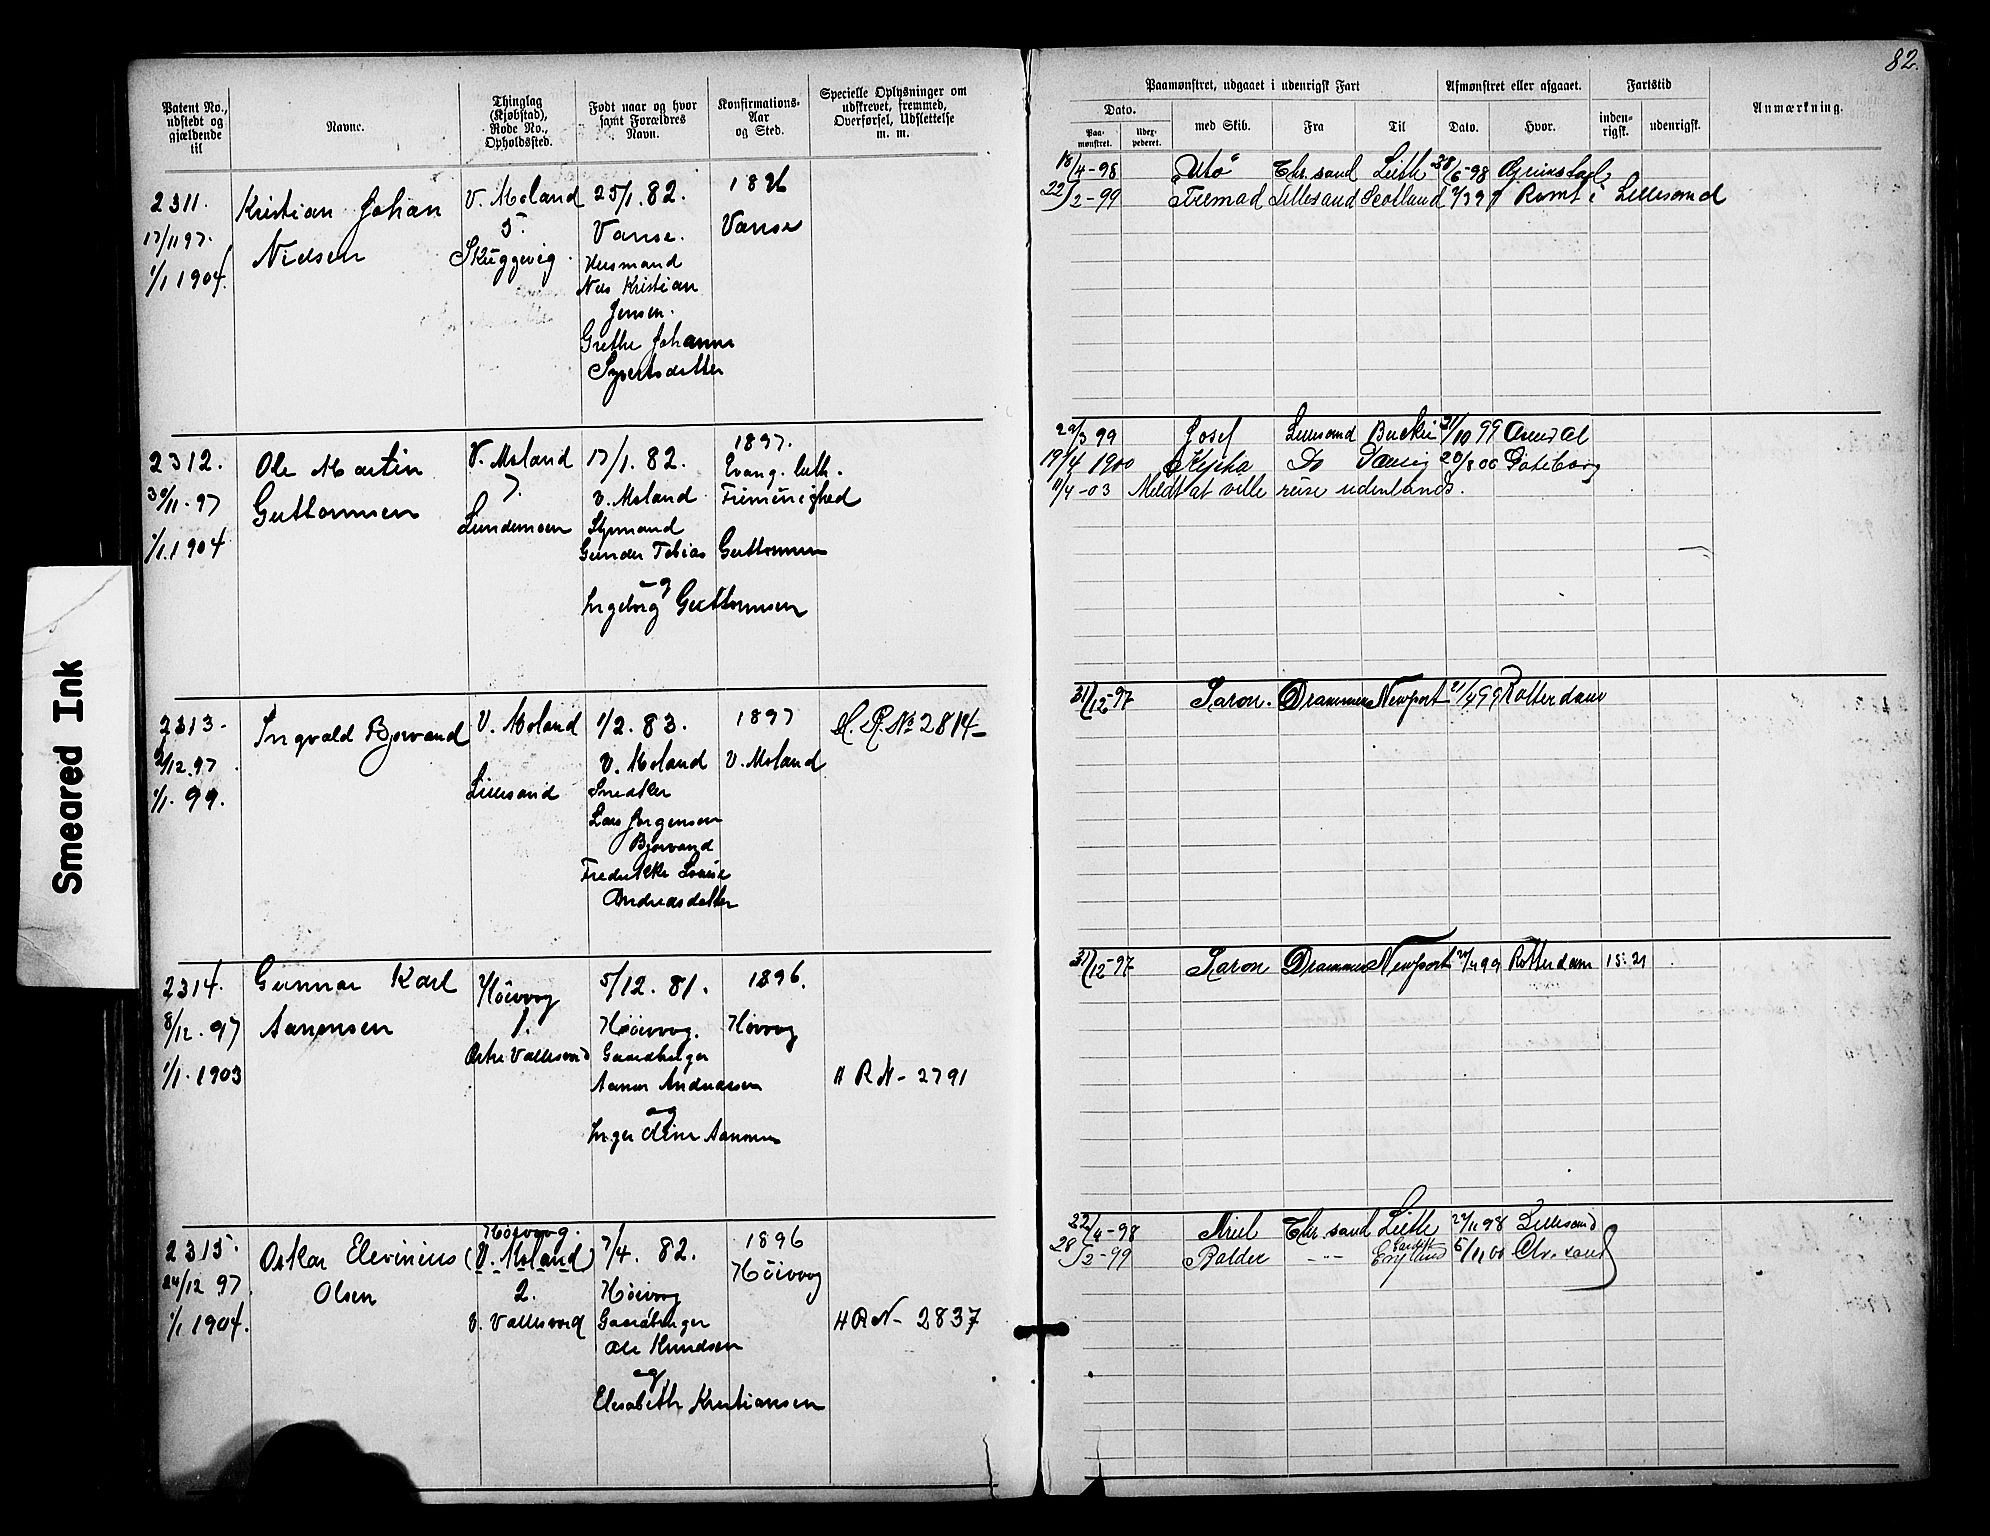 82.
Patent No., udstedt og gjældende til
Navne.
Thinglag (Kjøbstad), Rode No., Opholdssted.
Født naar og hvor samt Forældres Navn.
Konfirmations-Aar og Sted.
Specielle Oplysninger om udskrevet, fremmed, Overførsel, Udslettelse m. m.
Paamønstret, udgaaet i udenrigsk Fart
Dato.
Paamønstret.
med Skib.
Fra
Til
Afmønstret eller afgaaet.
Dato.
Hvor.
Fartstid
inden-rigsk.
udenrigsk.
Anmærkning.
2311.
17/11 97.
1/1 1904.
Kristian Johan
Nielsen
V. Moland
5.
Skuggevig
25/1. 82.
Vanse.
Husmand
Nils Kristian
Jensen.
Grethe Johanne
Syvertsdatter
1896
Vanse
18/4-98 Chr.sand Leith 28/6-98 Grimstad
22/2-99 Fremad Lillesand Scotland Rømt i Lillesand
2312.
30/11. 97
1/1. 1904
Ole Martin
Guttormsen
V. Moland
7.
Lundemoen
17/1. 82.
V. Moland
Styrmand
Gunder Tobias Guttormsen
og
Ingeborg Guttormsen
1897.
Evang. luth.
Frimenighed
Josef Lillesand 31/10 99 Arendal
19/4 1900 Do Göteborg
11/4-03 Meldt at ville reise udenlands.
2313.
2/12. 97
1/1. 99.
Ingvald Bjorvand
V. Moland
Lillesand
1/2. 83.
V. Moland
Snedker
Lars Jørgensen
Bjorvand
Fredrikke Lovise
Andreasdatter
1897
V. Moland
H. R. No 2814
31/12-97 Saron. Drammen Newport 21/4 99 Rotterdam
2314.
8/12. 97
1/1. 1903
Gunnar Karl
Aanensen
Høivaag
1.
Østre Vallesverd
5/12. 81.
Høivaag.
Gaardbruger
Aanon Andreassen
og
Inger Aanensen
1896.
Høivaag
H R N- 2791
31/12-97 Saron Drammen Newport 21/4 99 Rotterdam 15: 21
2315.
24/12 97.
1/1 1904.
Oskar Elevinius
Olsen
Høivaag.
(V. Moland)
2.
V. Vallesverd
7/4. 82.
Høivaag
Gaardbruger
Ole Knudsen
og
Elisabeth Kristiansen
1896
Høivaag
H R N- 2837
22/4-98 Ariel Chr.sand Leith 27/11 98 Lillesand
28/2-99 Balder -"- Cardiff England 5/11 00 Chr.sand
Smeared Ink